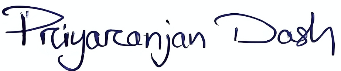 Priyaranjan Dash